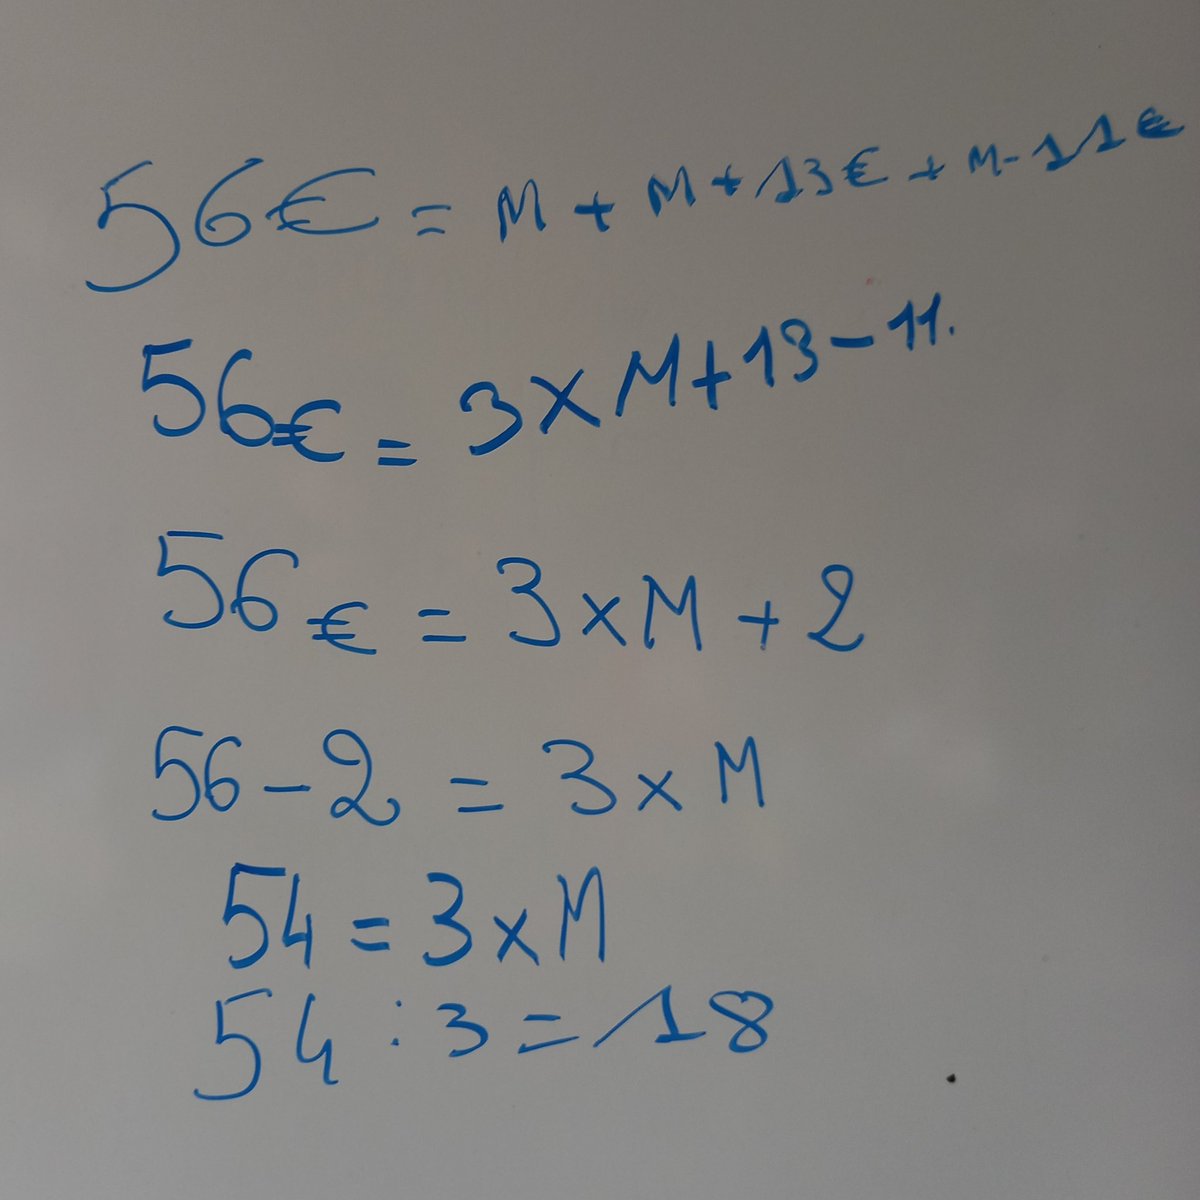 56€ = M + M + 13€ + M - 11€
56€ = 3 × M + 13 - 11.
56€ = 3 × M + 2
56 - 2 = 3 × M
54 = 3 × M
54 : 3 = 18